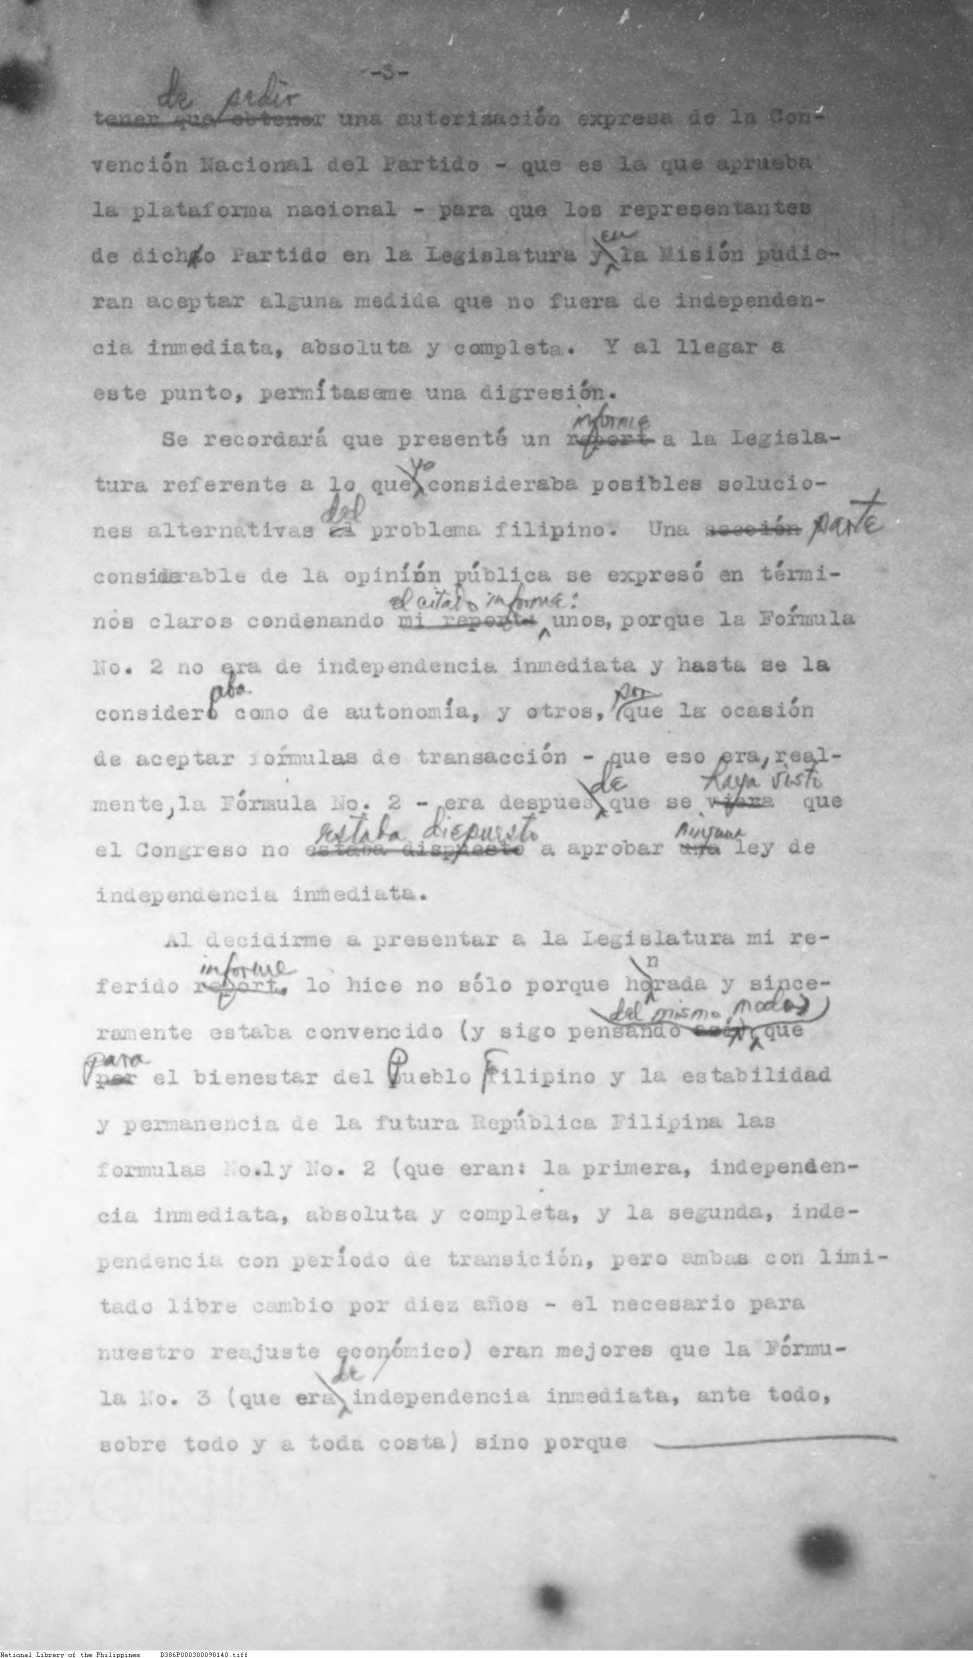 -3-
de pedir
tener que obtener una autorización expresa de la Con-
vención Nacional del Partido - que es la que aprueba
la plataforma nacional - para que los representantes
en
de dicho Partido en la Legislatura y la Misión pudie-
ran aceptar alguna medida que no fuera de independen-
cia inmediata, absoluta y completa. Y al llegar a
este punto, permítaseme una digresión.
informe
Se recordará que presenté un report a la Legisla-
yo
tura referente a lo que consideraba posibles solucio-
del
nes alternativas al problema filipino. Una sección parte
considerable de la opinión pública se expresó en térmi-
el citado informe:
nos claros condenando mi report: unos, porque la Fórmula
No. 2 no era de independencia inmediata y hasta se la
aba por
consideró como de autonomía, y otros, que la ocasión
de aceptar fórmulas de transacción - que eso era, real-
de haya visto
mente, la Fórmula No. 2 - era despues que se viera que
estaba dispuesto ninguna
el Congreso no estaba dispuesto a aprobar una ley de
independencia inmediata.
Al decidirme a presentar a la Legislatura mi re-
informe n
ferido report, lo hice no sólo porque horada y since-
del mismo modo)
ramente estaba convencido (y sigo pensando así), que
para P F
por el bienestar del pueblo filipino y la estabilidad
y permanencia de la futura República Filipina las
formulas No.1y No. 2 (que eran: la primera, independen-
cia inmediata, absoluta y completa, y la segunda, inde-
pendencia con período de transición, pero ambas con limi-
tado libre cambio por diez años - el necesario para
nuestro reajuste económico) eran mejores que la Fórmu-
de
la No. 3 (que era independencia inmediata, ante todo,
sobre todo y a toda costa) sino porque
National Library of the Philippines D386P000300090140.tiff